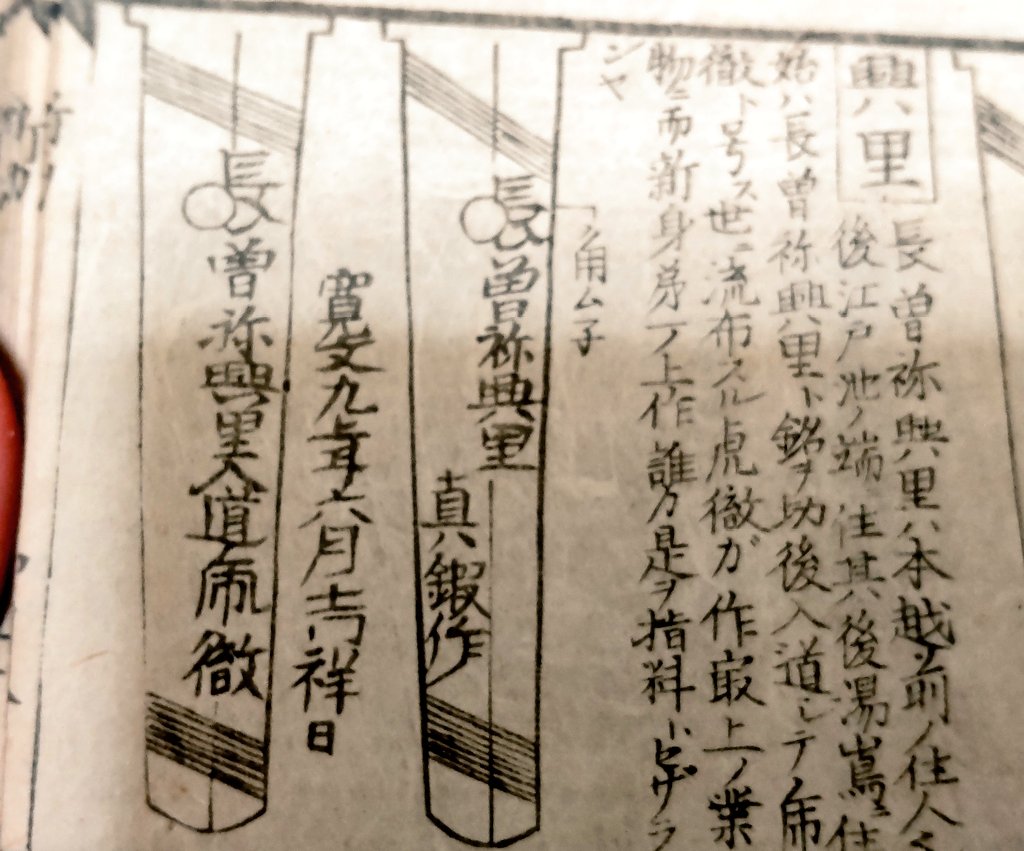 興里
長曽祢興里ハ本越前ノ住人ニ
後江戸池ノ端ニ住其後湯嶌ニ住
始ハ長曽祢興里ト銘ヲ切後入道シテノ乕
徹ト号ス世ニ流布スル虎徹ガ作冣上ノ業
物ニ而新身第一ノ上作誰カ是ヲ指料トセザラ
ンヤ
角ムネ
長曽祢興里
真ハ鍜作
寛文九年六月吉祥日
長曽祢興里入道乕徹